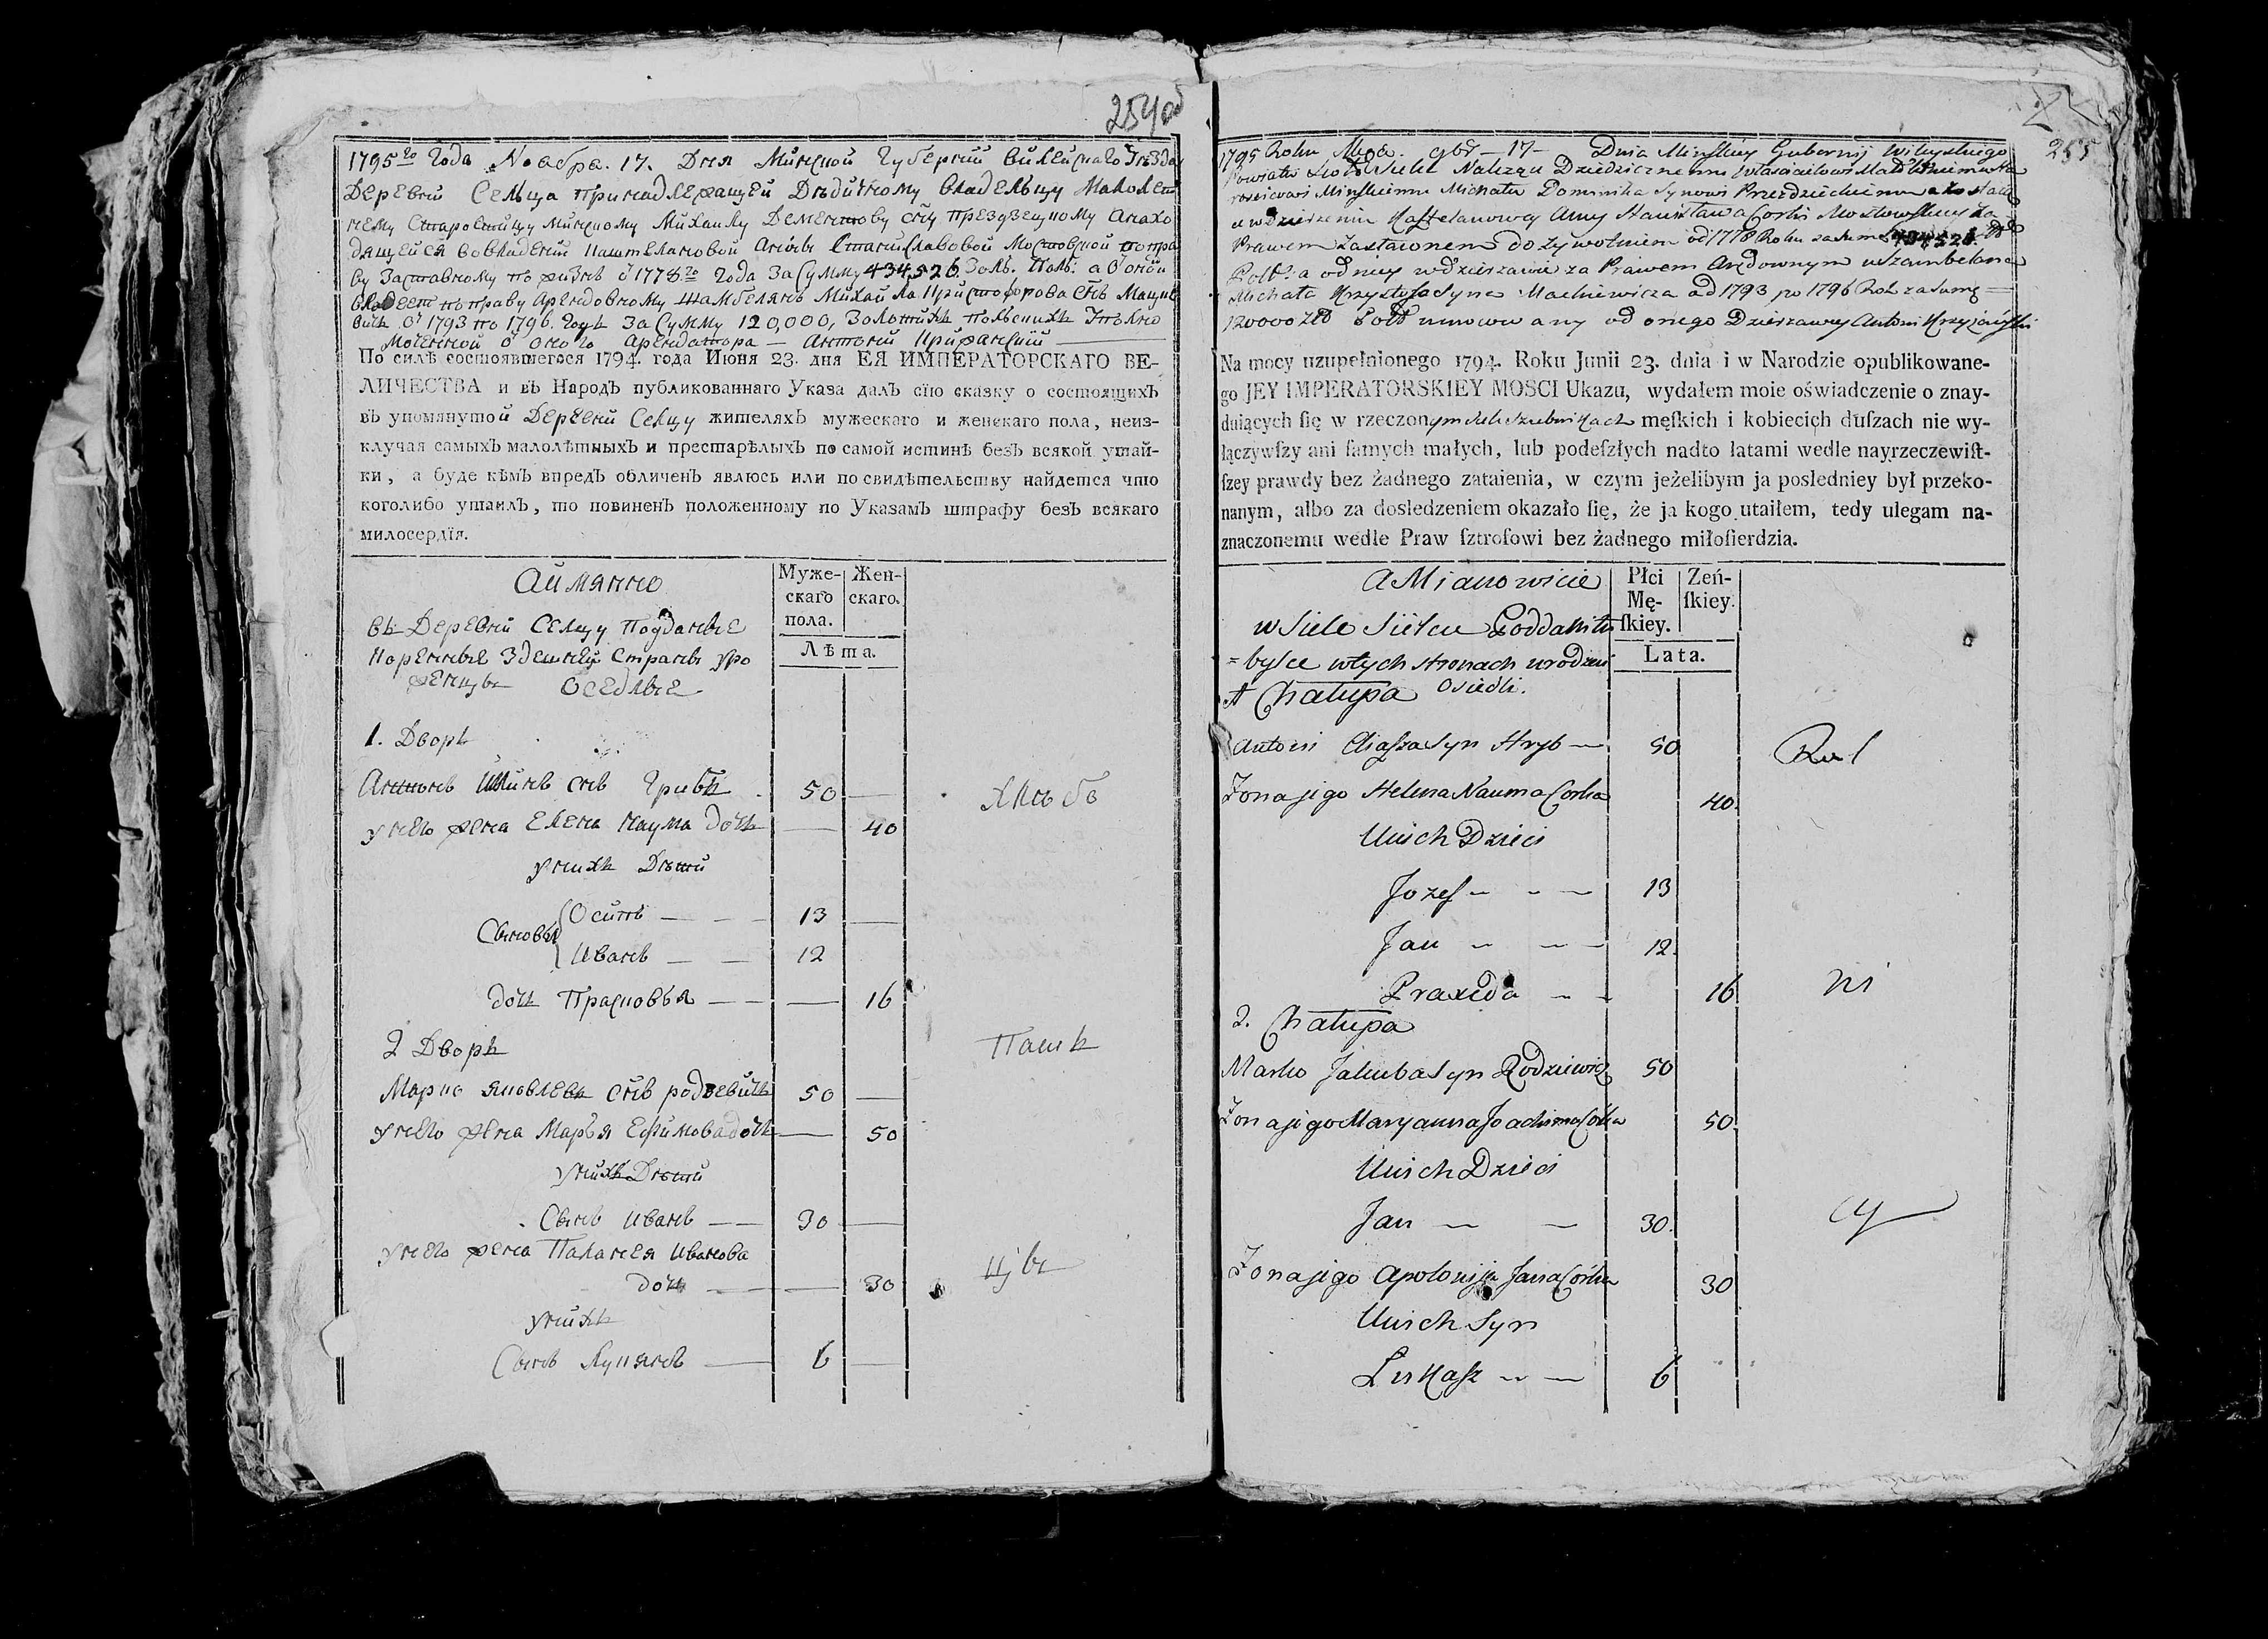 254об
1795го Года Ноабра. 17. Дня Минской Губернии Вилейскаго Уезда
Деревни Сельца Принадлежащей Дѣдичному владельцу Малолет
нему Старостичу Минскому Михаилу Дементову сну Презезецкому Анахо
дящейся вовладении Каштеляновой Анны Станиславовой Мостовской по пра
ву Заставному по жизнь с 1778го Года За Сумму 434,526 Золь. Поль: а в оной
владеет по праву Арендовному Шамбелянъ Михайла Криштофорова снъ Мацке
вичь от 1793 по 1796. Годъ За Сумму 120,000, Золотыхъ польскихъ
от оного Арендатора — Антоний Крижанский
По силѣ состоявшегося 1794. года Июня 23. дня ЕЯ ИМПЕРАТОРСКАГО ВЕ-
ЛИЧЕСТВА и въ Народъ публикованнаго Указа далъ сїю сказку о состоящихъ
въ упомянутой Деревни Селцу жителяхъ мужескаго и женскаго пола, неиз-
ключая самыхъ малолѣтныхъ и престарѣлыхъ по самой истинѣ безъ всякой утай-
ки, а буде кѣмъ впредь обличенъ явлюсь или по свидѣтельству найдется что
коголибо утаилъ, то повиненъ положенному по Указамъ штрафу безъ всякаго
милосердїя.
Аимянно
Муже-
скаго
пола.
Жен-
скаго.
Лѣта.
въ Деревни Селцу Подданые
Коренные Здешней Страны уро
женцы Оседлые
1. Дворъ
Антонъ Илинъ снъ Грибъ 50 —
у него жена Елена Наума дочь — 40
у нихъ Дѣти
Сыновья Осипъ — 13 —
Иванъ — 12
дочь Прасковья — — 16
2 Дворъ
Марко Яковлевъ снъ родзевичъ 50 —
у него жена Марья Ефимова дочь — 50
у нихъ Дѣти
Сынъ Иванъ — 30 —
у него жена Паланея Иванова
дочь — — 30
у нихъ
Сынъ Лукянъ — 6 —
255
1795 Roku Mca. 9br — 17 — Dnia Minskiey Gubernij Wileyskiego
Powiatu Sioło Sielec Należąca Dziedzicznemu Właścicielowi Małoletniemu Sta
rościcowi Minskiemu Michału Dominika Synowi Przezdzieckiemu a zostaie
w dzierżeniu Kasztelanowey Anny Stanisława Corki Mostowskiey za
Prawem Zastawnem dożywotniem od 1778 Roku za Sumę 434526 Zło
Pols: a od niey w dzierżawie za Prawem Arędownym u Szambelana
Michała Krzysztofa Syna Mackiewicza od 1793 po 1796 Rok za Sumę —
120000 Zło Pols umowany od onego Dzierżawcy Antoni Krzyżański
Na mocy uzupełnionego 1794. Roku Junii 23. dnia i w Narodzie opublikowane-
go JEY IMPERATORSKIEY MOSCI Ukazu, wydałem moie oświadczenie o znay-
duiących ſię w rzeczonym męſkich i kobiecich duſzach nie wy-
łączywſzy ani ſamych małych, lub podeſzłych nadto latami wedle nayrzeczewiſt-
ſzey prawdy bez żadnego zataienia, w czym jeżelibym ja posledniey był przeko-
nanym, albo za dosledzeniem okazało ſię, że ja kogo utaiłem, tedy ulegam na-
znaczonemu wedle Praw ſztrofowi bez żadnego miłoſierdzia.
A Mianowicie
Płci
Mę-
ſkiey.
Zeń-
ſkiey.
Lata.
w Siele Sielcu Poddani tu
= bylce w tych stronach urodzeni
Osiedli.
1 Chałupa
Antoni Eliaſza Syn Hryb — 50
Zona jigo Helena Nauma Corka 40.
U nich Dzieci
Jozef — 13
Jan — 12.
Praxeda — 16
2. Chałupa
Marko Jakuba Syn Rodziewicz 50
Zona jigo Maryanna Joachima Córka 50.
U nich Dzieci
Jan — 30.
Zona jigo Apolonija Jana Córka 30
U nich Syn
Łukaſz — 6